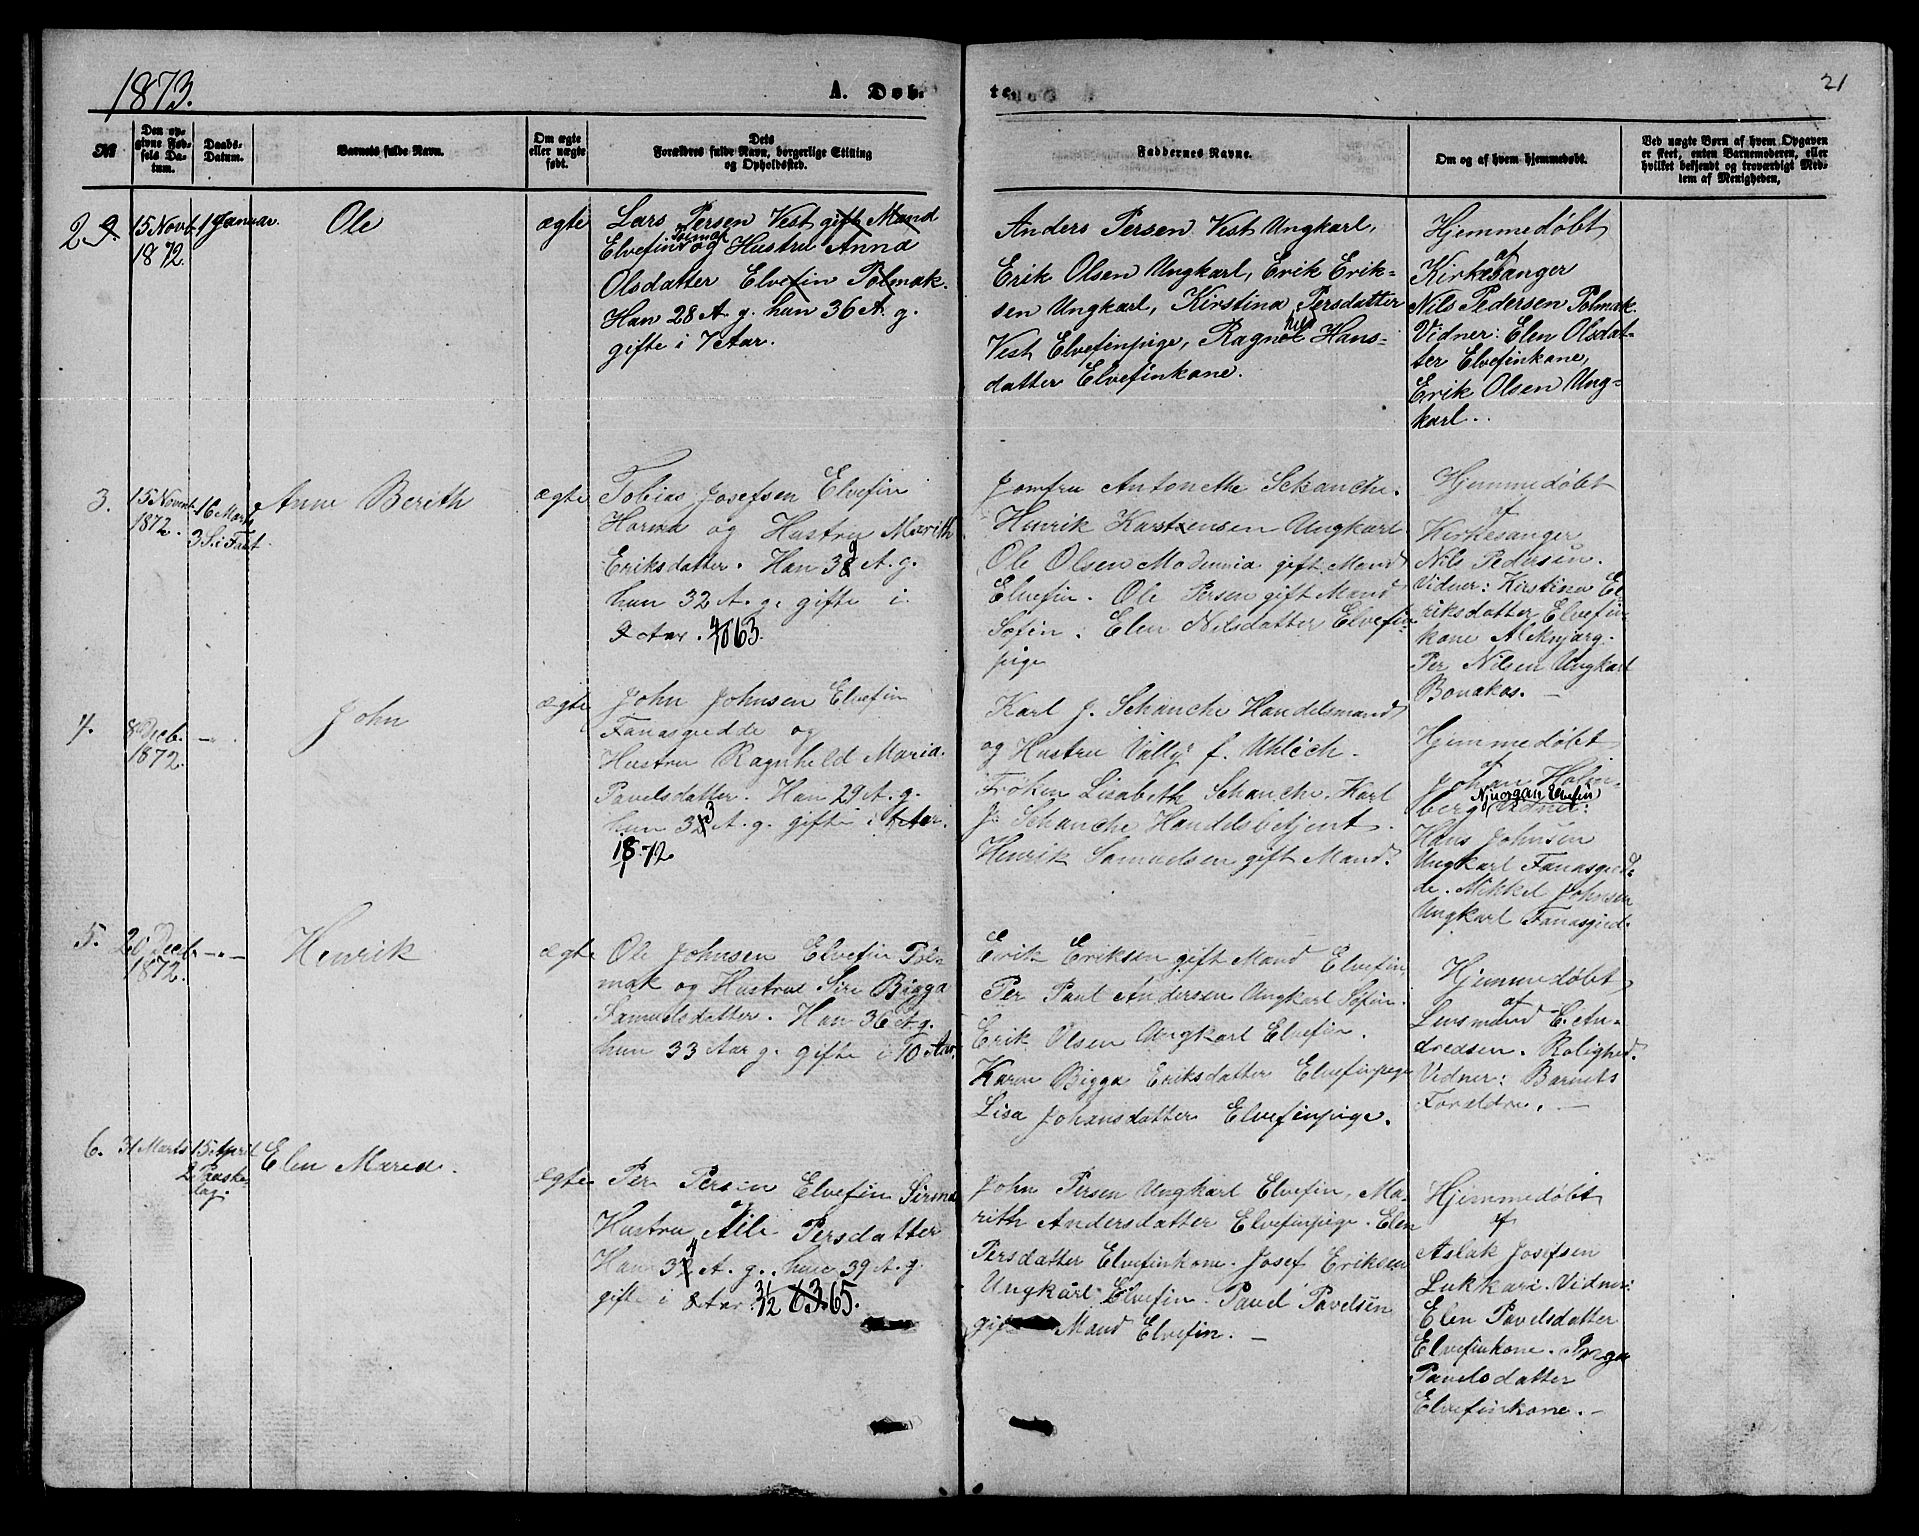 1873.
A. Døb-
te.
21
No
Den op-
givne Fød-
sels Da-
tum.
Daabs-
Datum.
Barnets fulde Navn.
Om ægte
eller uægte
født.
Dets
Forældres fulde Navn, borgerlige Stilling
og Opholdssted.
Faddernes Navne.
Om og af hvem hjemmedøbt.
Ved uægte Børn af hvem Opgaven
er skeet, enten Barnemoderen, eller
hvilket bekjendt og troværdigt Med-
lem af Menigheden.
2
15 Novb.
1872.
1 Januar.
Ole
ægte
Lars Persen Vest gift Mand
Polmak
Elvefin og Hustru Anna
Olsdatter Elvefin Polmak.
Han 28 A. g. hun 36 A. g.
gifte i 7 Aar.
Anders Persen Vest Ungkarl,
Erik Olsen Ungkarl, Erik Erik-
sen Ungkarl, Kirstina Persdatter
Vest Elvefinpige, Ragnhild Hans-
datter Elvefinkone.
Hjemmedøbt
af
Kirkesanger
Nils Pedersen Polmak.
Vidner: Elen Olsdat-
ter Elvefinkone,
Erik Olsen Ung-
karl.
3.
15 Novbr.
1872.
16 Marts
3 S. i Fast.
Anne Berith
ægte
Tobias Josefsen Elvefin
Horma og Hustru Marith
Eriksdatter. Han 39 A. g.
hun 32 A. g. gifte i
9 Aar. 4/10 63.
Jomfru Antonette Schanche.
Henrik Karstensen Ungkarl
Ole Olsen Modennia gift Mand
Elvefin. Ole Persen gift Mand
Søfin. Elen Nilsdatter Elvefin-
pige
Hjemmedøbt
af
Kirkesanger
Nils Pedersen.
Vidner: Kirstina E-
riksdatter Elvefin-
kone Aleknjarg.
Per Nilsen Ungkarl
Bonakas. —
4.
8 Decb.
1872.
— " —
John
ægte
John Johnsen Elvefin
Fanasgiedde og
Hustru Ragnhild Maria
Pavelsdatter. Han 29 A. g.
hun 33 A. g. gifte i 1 Aar.
1872
Karl J. Schanche Handelsmand
og Hustru Vally f. Uhlich.
Frøken Lisabeth Schanche. Karl
J. Schanche Handelsbetjent.
Henrik Samuelsen gift Mand.
Hjemmedøbt
af
Johan Holm-
berg, Njuorgan Elvefin Vidner:
Hans Johnsen
Ungkarl Fanasgied-
de. Mikkel Johnsen
Ungkarl Fanasgied.
5.
20 Decb.
1872.
— " —
Henrik
ægte
Ole Johnsen Elvefin Pol-
mak og Hustru Siri Bigga
Samuelsdatter. Han 36 A. g.
hun 33 Aar g. gifte i 10 Aar.
Erik Eriksen gift Mand Elvefin,
Per Paul Andersen Ungkarl Søfin.
Erik Olsen Ungkarl Elvefin.
Karen Bigga Eriksdatter Elvefinpige
Lisa Johansdatter Elvefinpige.
Hjemmedøbt
af
Lensmand E. An-
dredsen. Rolighed.
Vidner: Barnets
Foreldre. —
6.
31 Marts
15 April
2 Paaske-
dag.
Elen Maria.
ægte
Per Persen Elvefin Sirma
Hustru Aili Persdatter
Han 34 A. g. hun 39 A. g.
gifte i 8 Aar. 3/12 65.
John Persen Ungkarl Elvefin, Ma-
rith Andersdatter Elvefinpige. Elen
Persdatter Elvefinkone. Josef Eriksen
Ungkarl Elvefin. Pavel Pavelsen
gift Mand Elvefin. —
Hjemmedøbt
af
Aslak Josefsen
Lukkari. Vidner:
Elen Pavelsdatter
Elvefinkone.
Pavelsdatter
Elvefinkone. —